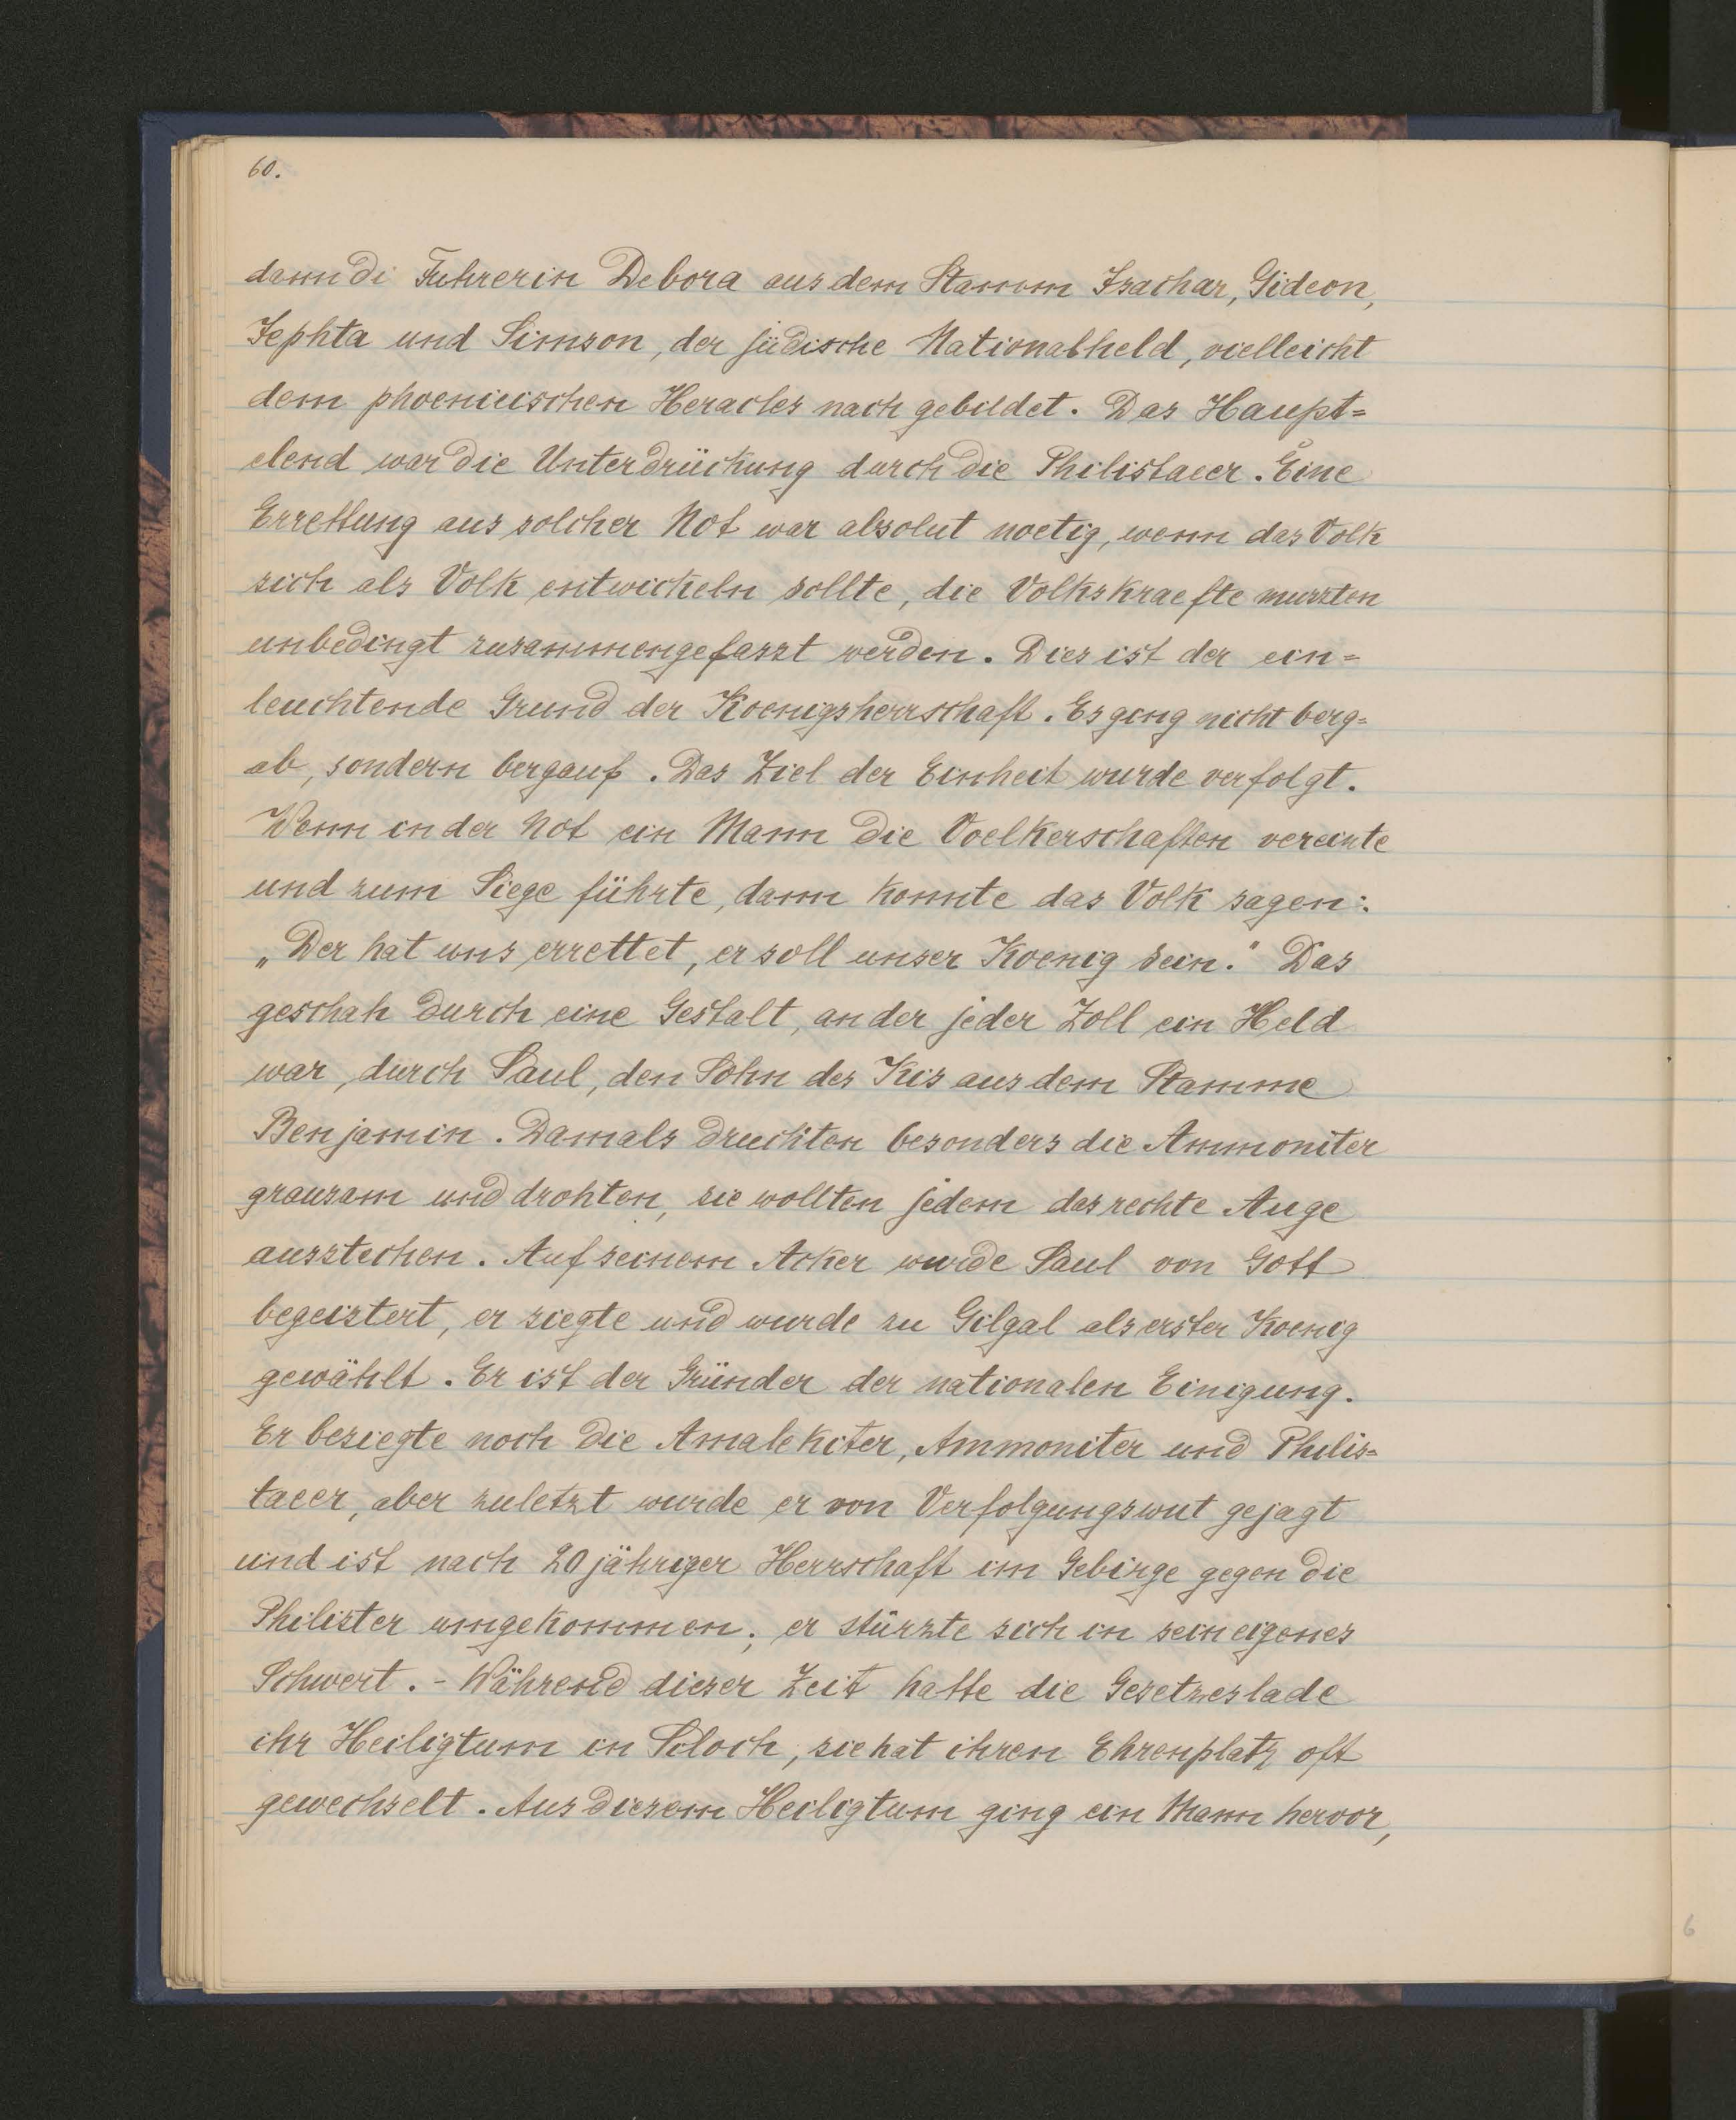 60.
dann di Fuhrerin Debora aus dem Stamm Isachar, Gideon,
Jephta und Simson, der jüdische Nationalheld, vielleicht
dem phoenicischen Heracles nach gebildet. Das Haupt=
elend war die Unterdrückung durch die Philistaeer. Eine
Errettung aus solcher Not war absolut noetig, wenn das Volk
sich als Volk entwickeln sollte, die Volkskraefte mussten
unbedingt zusammengefasst werden. Dies ist der ein=
leuchtende Grund der Koenigsherrschaft. Es ging nicht berg=
ab, sondern bergauf. Das Ziel der Einheit wurde verfolgt.
Wenn in der Not ein Mann die Voelkerschaften vereinte
und zum Siege führte, dann konnte das Volk sagen:
„Der hat uns errettet, er soll unser Koenig sein." Das
geschah durch eine Gestalt, an der jeder Zoll ein Held
war, durch Saul, den Sohn des Kis aus dem Stamme
Benjamin. Damals druckten besonders die Ammoniter
grausam und drohten, sie wollten jedem das rechte Auge
ausstechen. Auf seinem Acker wurde Saul von Gott
begeistert, er siegte und wurde zu Gilgal als erster Koenig
gewählt. Er ist der Gründer der nationalen Einigung.
Er besiegte noch die Amalekiter, Ammoniter und Philis=
taeer, aber zuletzt wurde er von Verfolgungswut gejagt
und ist nach 20 jähriger Herrschaft im Gebirge gegen die
Philister umgekommen; er stürzte sich in sein eigenes
Schwert. - Während dieser Zeit hatte die Gesetzeslade
ihr Heiligtum in Siloch, sie hat ihren Ehrenplatz oft
gewechselt. Aus diesem Heiligtum ging ein Mann hervor,
6